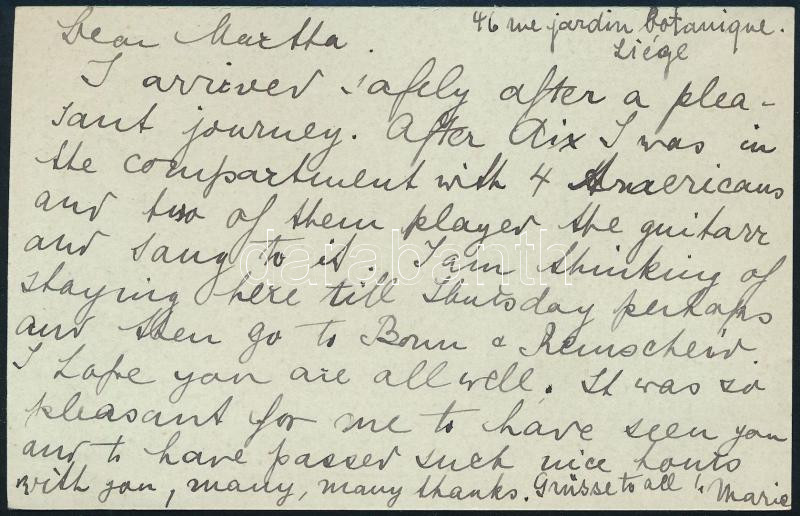 46 rue jardin botanique.
Liége
Dear Martha.
I arrived safely after a plea-
sant journey. After Aix I was in
the compartment with 4 Americans
and two of them played the guitarr
and sang to it. I am thinking of
staying here till Thursday perhaps
and then go to Bonn & Remscheid.
I hope you are all well. It was so
pleasant for me to have seen you
and to have passed such nice hours
with you, many, many thanks. Grüsse to all! Marie
darabanth